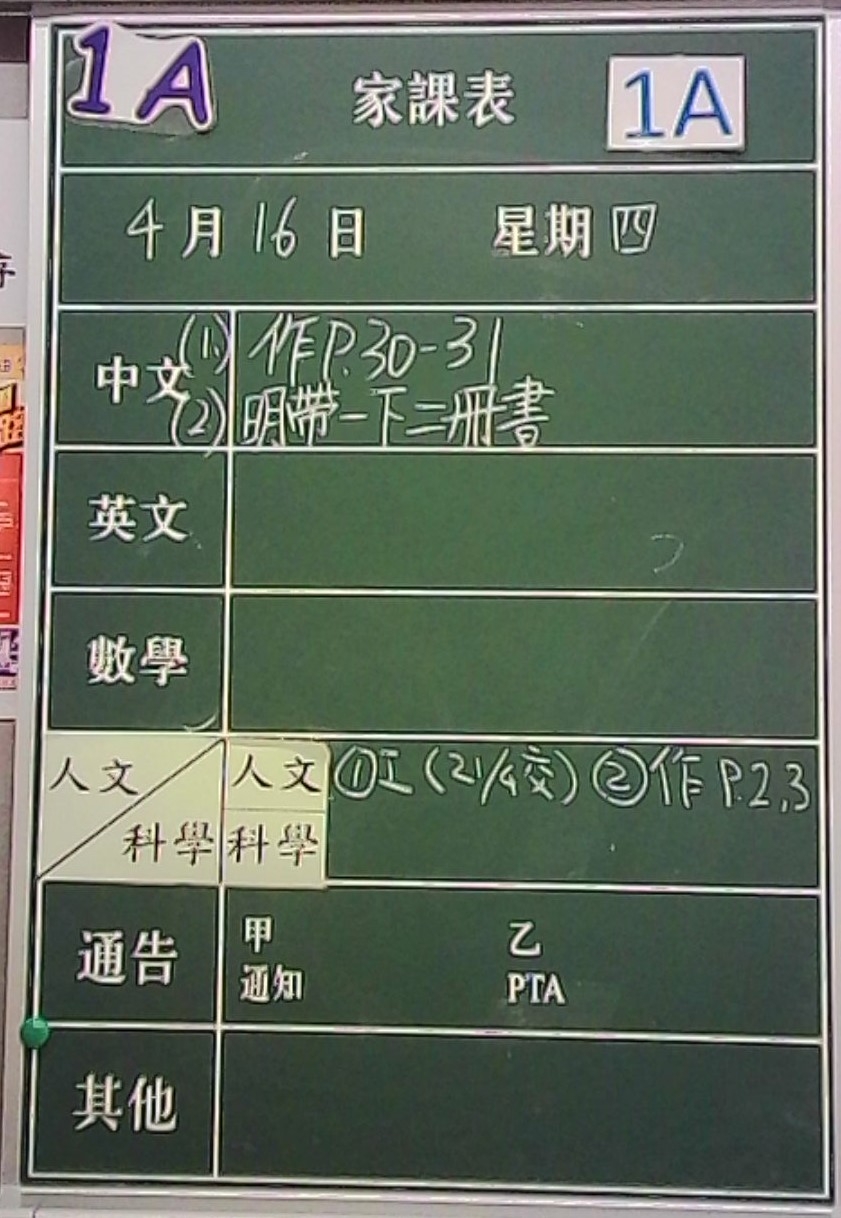 1A 家課表 1A
4月16日 星期四
中文 (1) 作P.30-31
(2) 明帶一下二冊書
英文
數學
人文 人文 ①工(21/4交) ②作P.2,3
科學 科學
通告 甲 乙
通知 PTA
其他